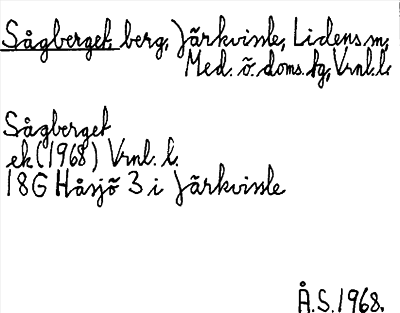 Sågberget, berg, Järkvissle, Lidens sn,
Med. ö. doms. tg, Vrnl. l.
Sågberget
ek (1968) Vrnl. l.
18G Håsjö 3 i Järkvissle
Å.S. 1968.